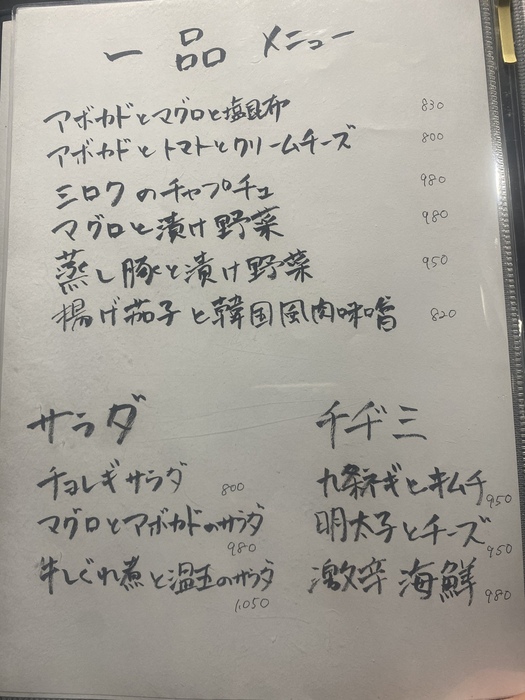 一品 メニュー
アボカドとマグロと塩昆布 830
アボカドとトマトとクリームチーズ 800
ミロクのチャプチェ 980
マグロと漬け野菜 980
蒸し豚と漬け野菜 950
揚げ茄子と韓国風肉味噌 820
サラダ
チョレギサラダ 800
マグロとアボカドのサラダ 980
牛しぐれ煮と温玉のサラダ 1,050
チヂミ
九条ネギとキムチ 950
明太子とチーズ 950
激辛海鮮 980